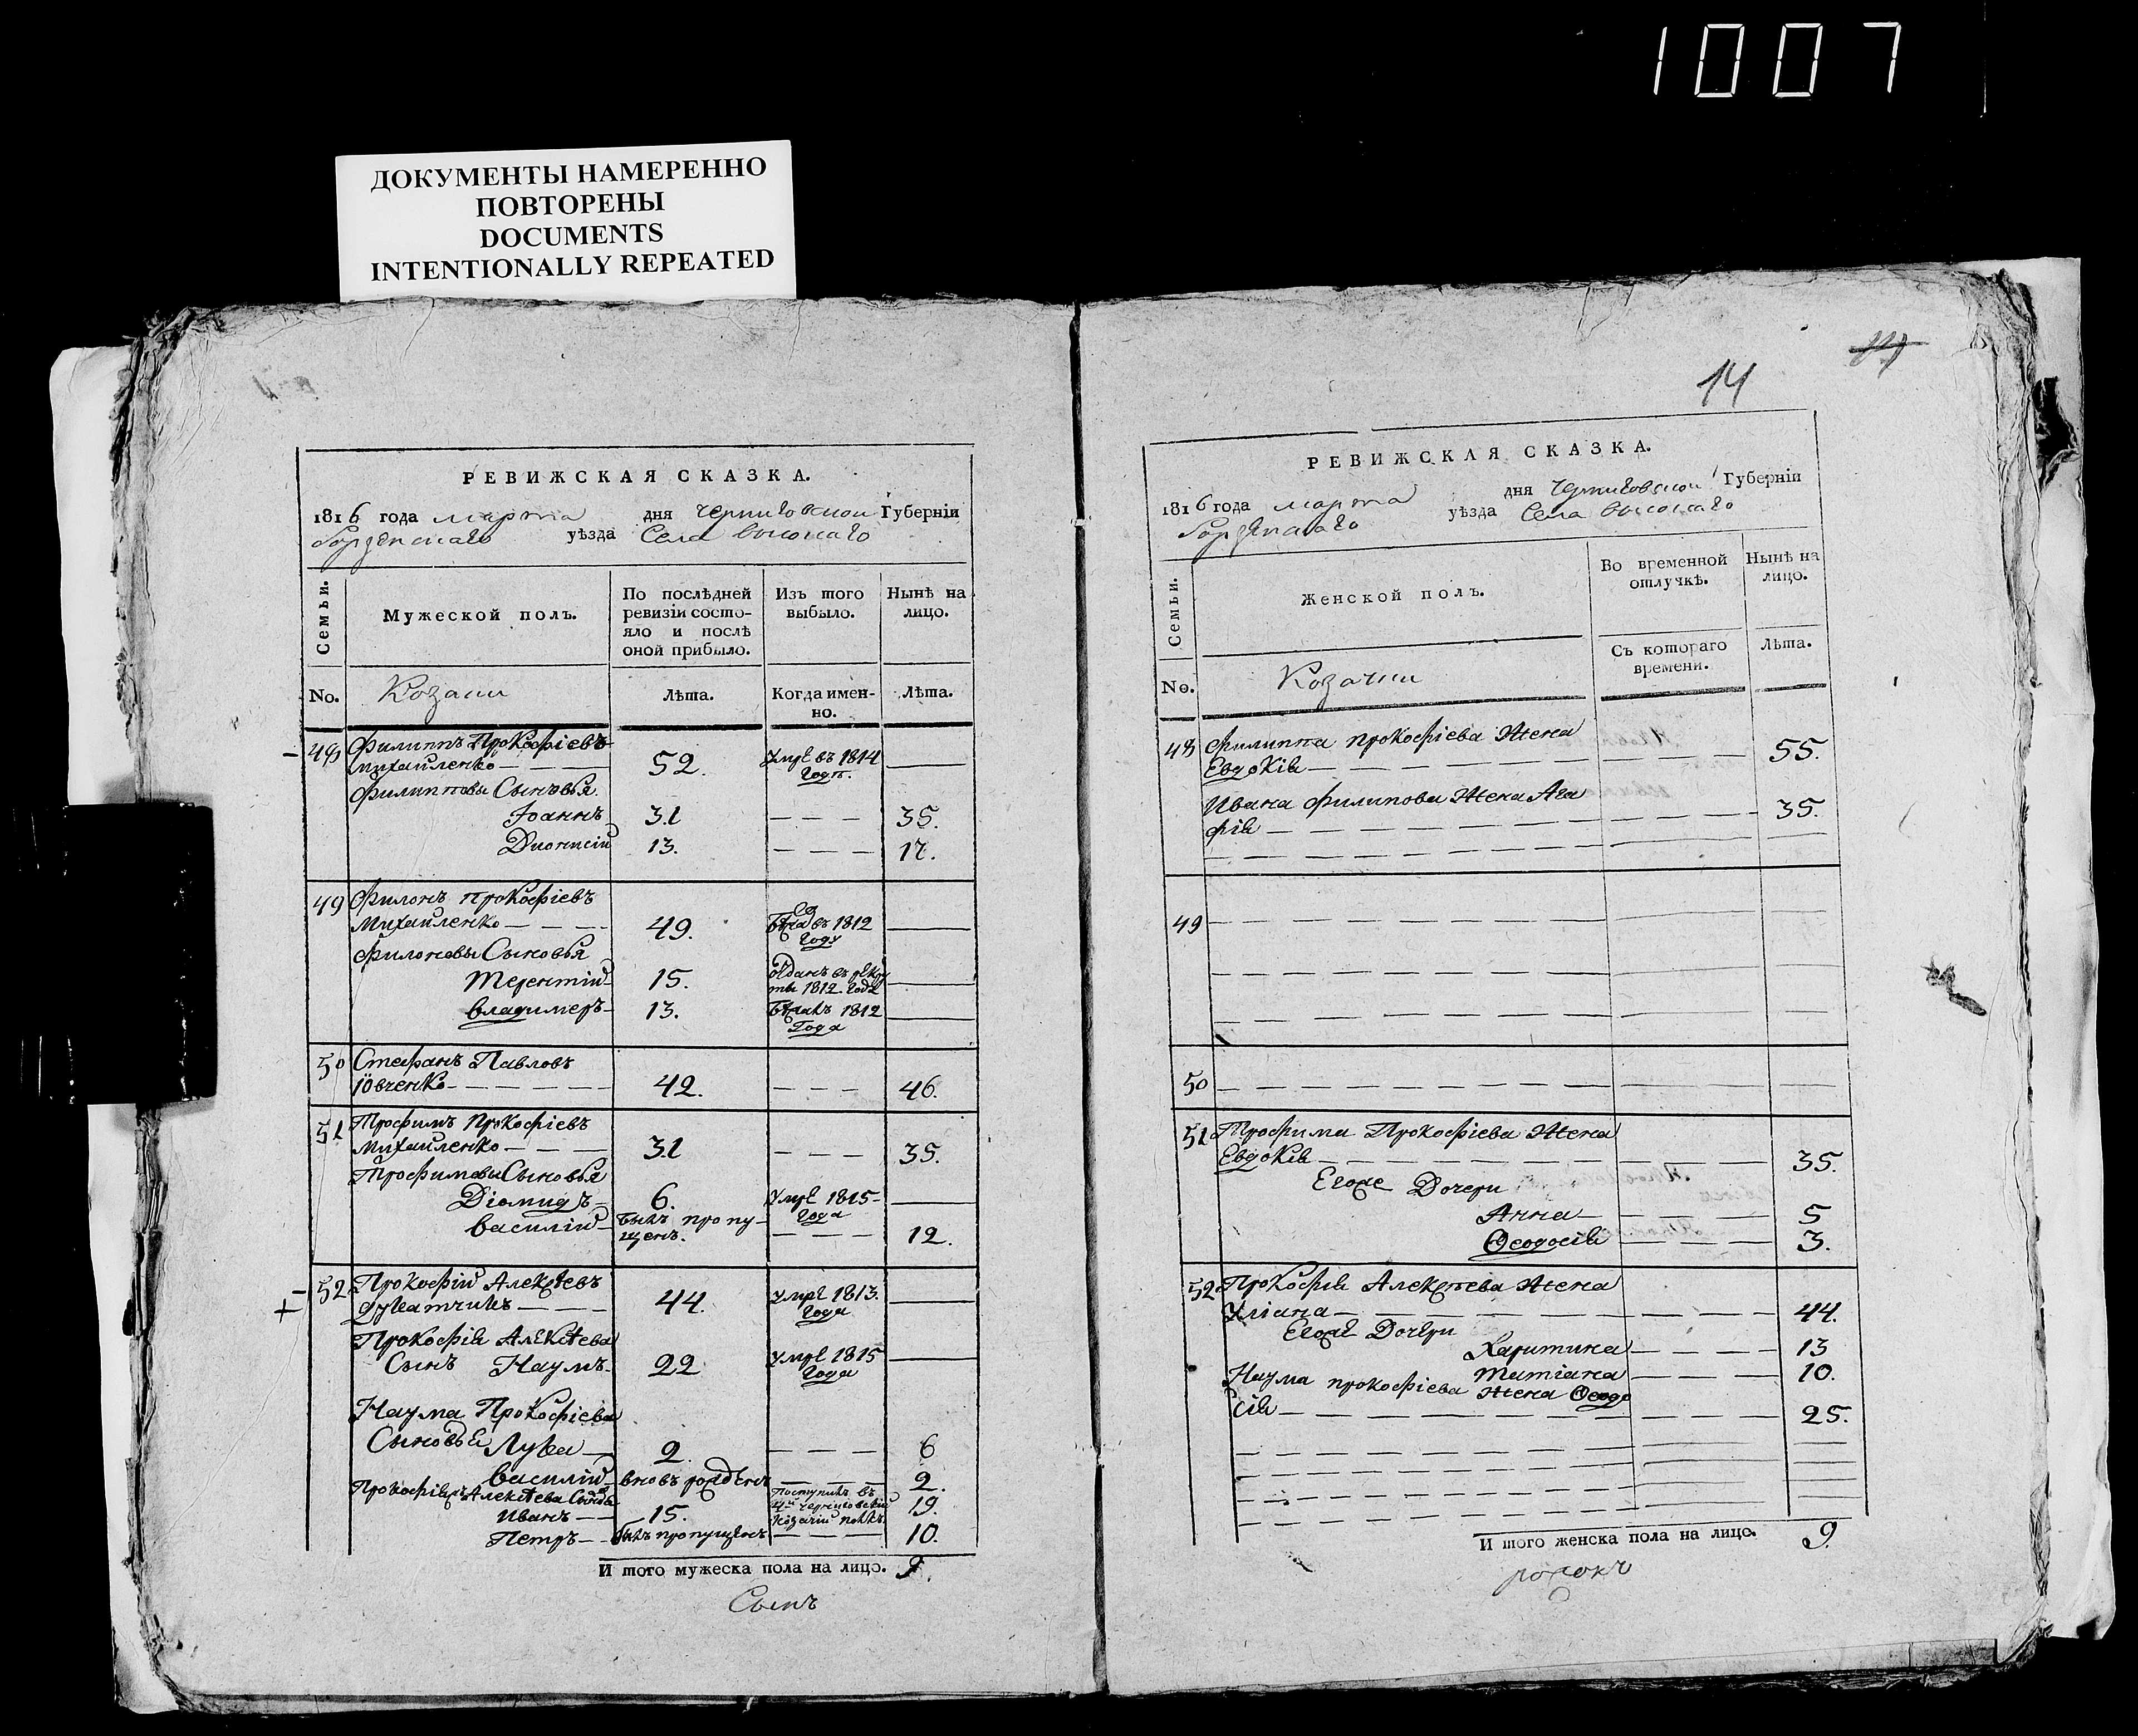 1007
ДОКУМЕНТЫ НАМЕРЕННО
ПОВТОРЕНЫ
DOCUMENTS
INTENTIONALLY REPEATED
РЕВИЖСКАЯ СКАЗКА.
1816 года марта дня Черниговской Губернiи
Борзенскаго уѣзда Села Высокаго
Семьи.
Мужеской полъ.
По послѣдней
ревизiи состо-
яло и послѣ
оной прибыло.
Изъ того
выбыло.
Нынѣ на
лицо.
No.
Козаки
Лѣта.
Когда имен-
но.
Лѣта.
48 Филиппъ Прокофiевъ
Михайленко 52. умре въ 1814
года.
Филиповы Сыновья
Iоаннъ 31 35.
Дионисiй 13. 17.
49 Филонъ Прокофiевъ
Михайленко 49. въ 1812
году
Филоновы Сыновья
Терентiй 15. отданъ въ рекру
ты 1812 года
Владимеръ 13. 1812
Года
50 Стефанъ Павловъ
Iовченко 42. 46.
51 Трофимъ Прокофiевъ
Михайленко 31 35.
Трофимовы Сыновья
Дiомидъ 6. умре 1815
года
Василiй былъ пропу-
щенъ. 12.
52 Прокофiй Алексѣевъ
44. умре 1813.
года
Прокофiя Алексѣева
Сынъ Наумъ 22 умре 1815
года
Наума Прокофiева
Сыновья Лука 2. 6
Василiй вновь рожденъ 2.
Прокофiя Алексѣева Сыновья
Иванъ 15. Поступилъ въ
Черниговскiй
Козачiй полкъ. 19.
Петръ былъ пропущенъ 10.
И того мужеска пола на лицо. 9.
Сынъ
14
РЕВИЖСКАЯ СКАЗКА.
1816 года марта дня Черниговской Губернiи
Борзенскаго уѣзда Села Высокаго
Семьи.
Женской полъ.
Во временной
отлучкѣ.
Нынѣ на
лицо.
Съ котораго
времени.
Лѣта.
No.
Козачки
48 Филиппа Прокофiева Жена
Евдокiя 55.
Ивана Филипова Жена Ага
фiя 35.
49
50
51 Трофима Прокофiева Жена
Евдокiя 35.
Егоже Дочери
Анна 5
Ѳеодосiя 3.
52 Прокофiя Алексѣева Жена
Улiана 44.
Егоже Дочери
Харитина 13
Татiана 10.
Наума Прокофiева Жена Ѳеодо
сiя 25.
И того женска пола на лицо. 9.